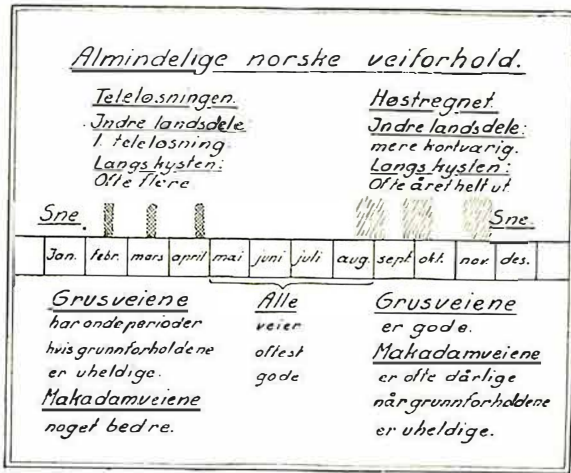 Almindelige norske veiforhold.
Teleløsningen.
Indre landsdele
1. teleløsning
Langs kysten:
Ofte flere
Høstregnet.
Indre landsdele:
mere kortvarig.
Langs kysten:
Ofte året helt ut.
Sne.
Sne.
Jan. febr. mars april mai juni juli aug. sept okt. nov. des.
Grusveiene
har onde perioder
hvis grunnforholdene
er uheldige.
Makadamveiene
noget bedre.
Alle
veier
oftest
gode
Grusveiene
er gode.
Makadamveiene
er ofte dårlige
når grunnforholdene
er uheldige.